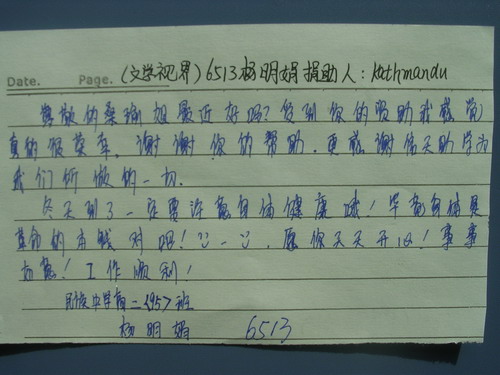 Date. Page. (文学视界) 6513 杨明娟 捐助人: Kathmandu
尊敬的桑瑜姐最近好吗?收到你的资助我感觉
真的很荣幸,谢谢你的帮助,更感谢信天助学为
我们所做的一切.
冬天到了一定要注意身体健康哦!毕竟身体是
革命的本钱对吧! 愿你天天开心!事事
如意!工作顺利!
民族中学高二<95>班
杨明娟 6513